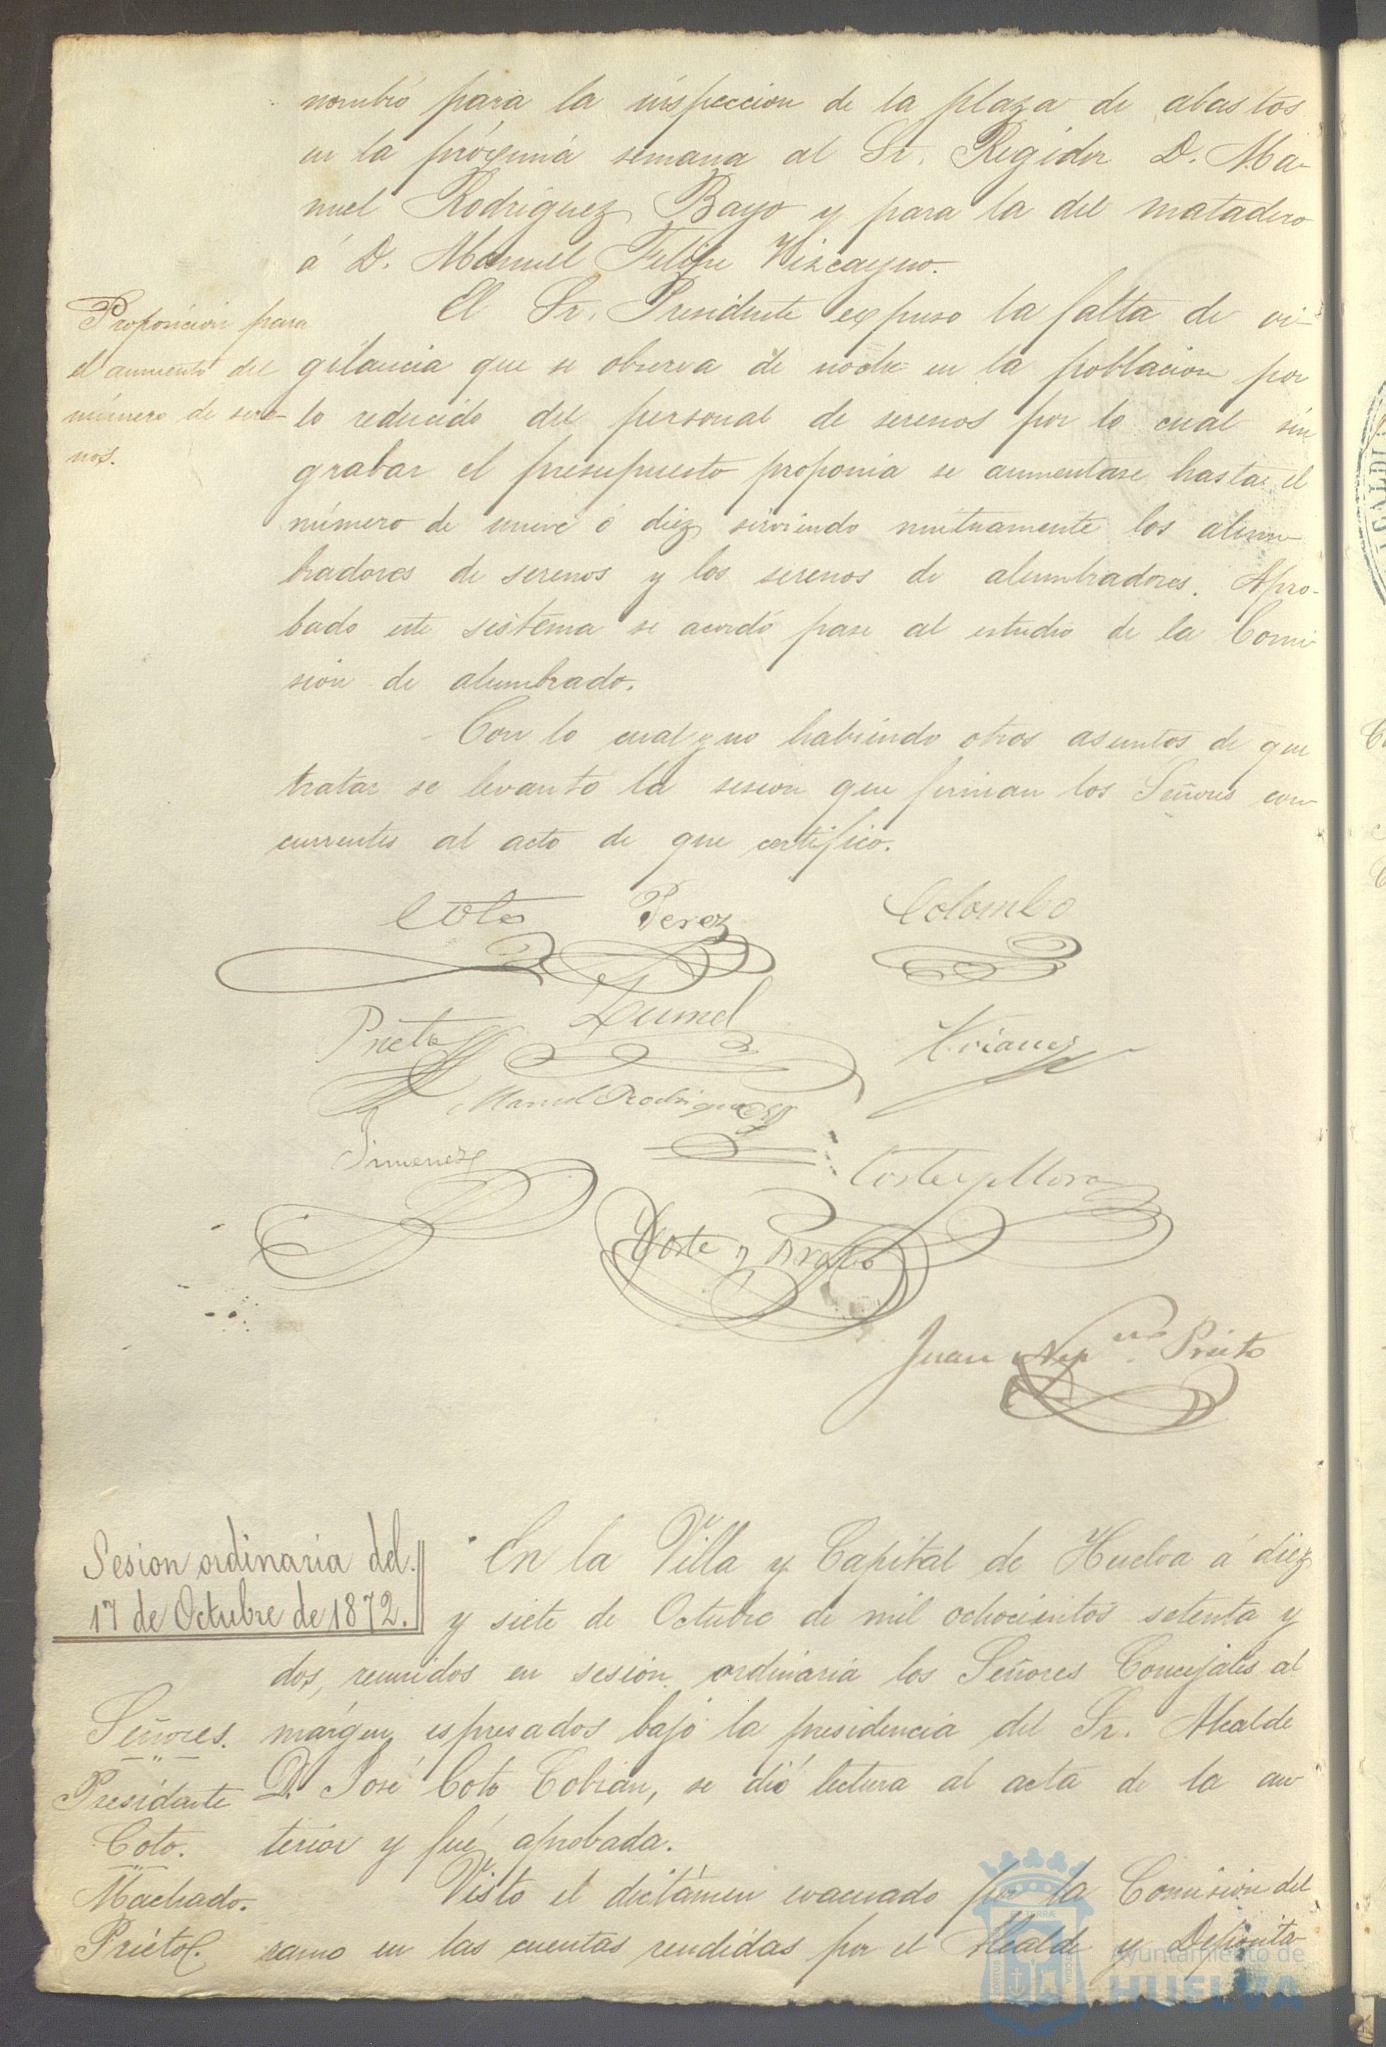 nombró para la inspeccion de la plaza de abastos
en la próxima semana al Sr. Regidor D. Ma-
nuel Rodriguez Bayo y para la del matadero
á D. Manuel Felipe Vizcayno.
Proposicion para
el aumento del
número de sere-
nos.
El Sr. Presidente expuso la falta de vi-
gilancia que se observa de noche en la poblacion por
lo reducido del personal de serenos por lo cual sin
grabar el presupuesto proponia se aumentase hasta el
número de nueve ó diez sirviendo mutuamente los alum-
bradores de serenos y los serenos de alumbradores. Apro-
bado este sistema se acordó pase al estudio de la Comi-
sion de alumbrado.
Con lo cual y no habiendo otros asuntos de que
tratar se levantó la sesion que firman los Señores con-
currentes al acto de que certifico.
Coto Perez Colombo
Prieto
Manuel Rodriguez
Jimenez
Juan Nep.no Prieto
Sesion ordinaria del
17 de Octubre de 1872.
En la Villa y Capital de Huelva á diez
y siete de Octubre de mil ochocientos setenta y
dos, reunidos en sesion ordinaria los Señores Concejales al
márgen espresados bajo la presidencia del Sr. Alcalde
D. José Coto Cobian, se dió lectura al acta de la an-
terior y fué aprobada.
Señores.
Presidente
Coto.
Machado.
Prieto.
Visto el dictámen evacuado por la Comision del
ramo en las cuentas rendidas por el Alcalde y Deposita-
Ayuntamiento de
HUELVA